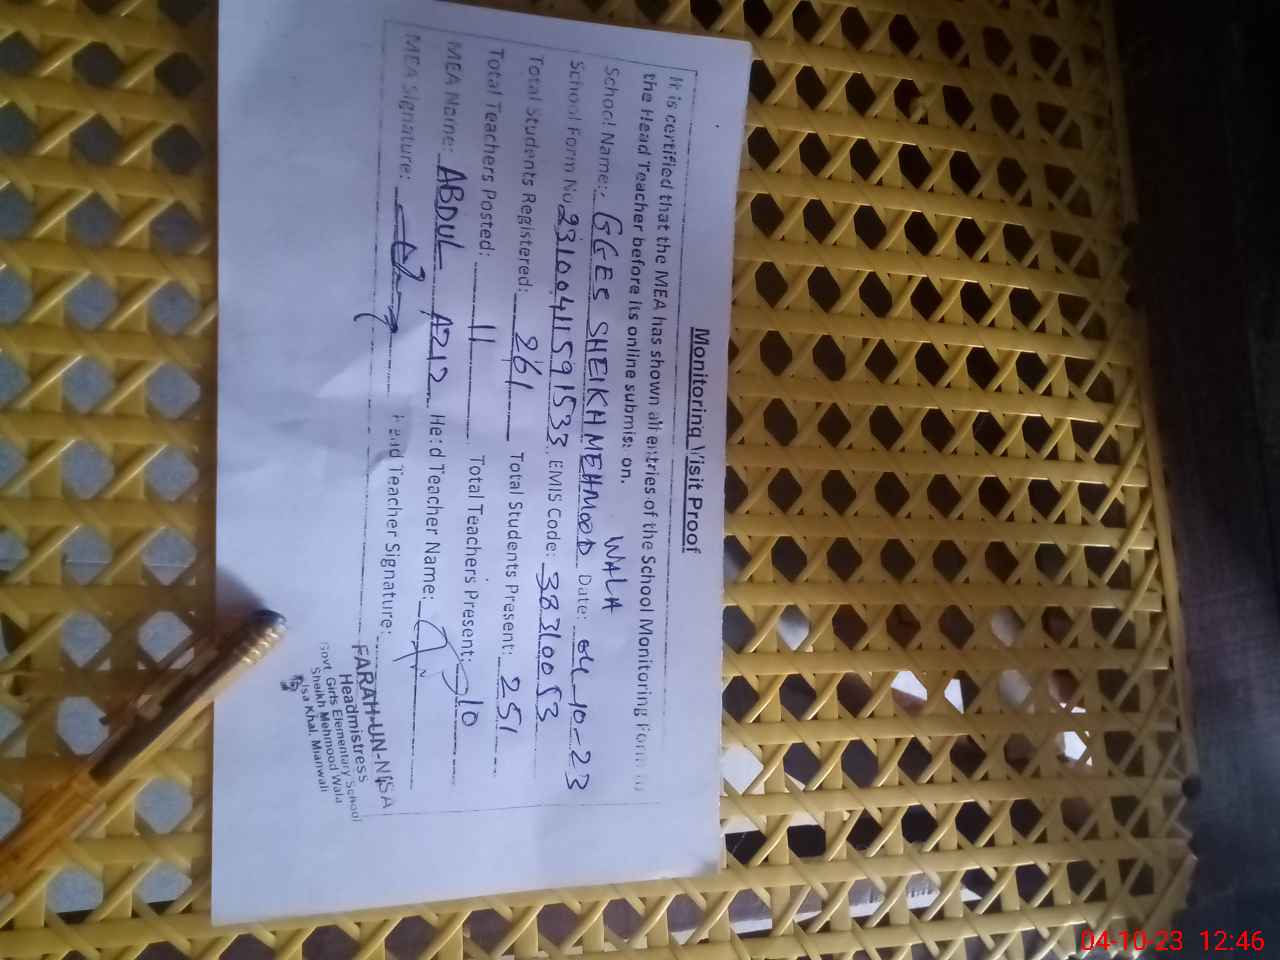 Monitoring Visit Proof
It is certified that the MEA has shown all entries of the School Monitoring Form to
the Head Teacher before its online submission.
School Name: GGES SHEIKH MEHMOOD WALA Date: 04-10-23
School Form No 23100411591533 EMIS Code: 38310053
Total Students Registered: 261 Total Students Present: 251
Total Teachers Posted: 11 Total Teachers Present: 10
MEA Name: ABDUL AZIZ Head Teacher Name:
MEA Signature: Head Teacher Signature:
FARAH-UN-NISA
Headmistress
Govt. Girls Elementary School
Sheikh Mehmood Wala
Isa Khal, Mianwali
04-10-23 12:46